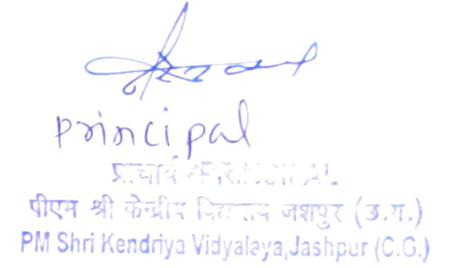 principal
प्राचार्य
पीएम श्री केन्द्रीय विद्यालय जशपुर (छ.ग.)
PM Shri Kendriya Vidyalaya,Jashpur (C.G.)